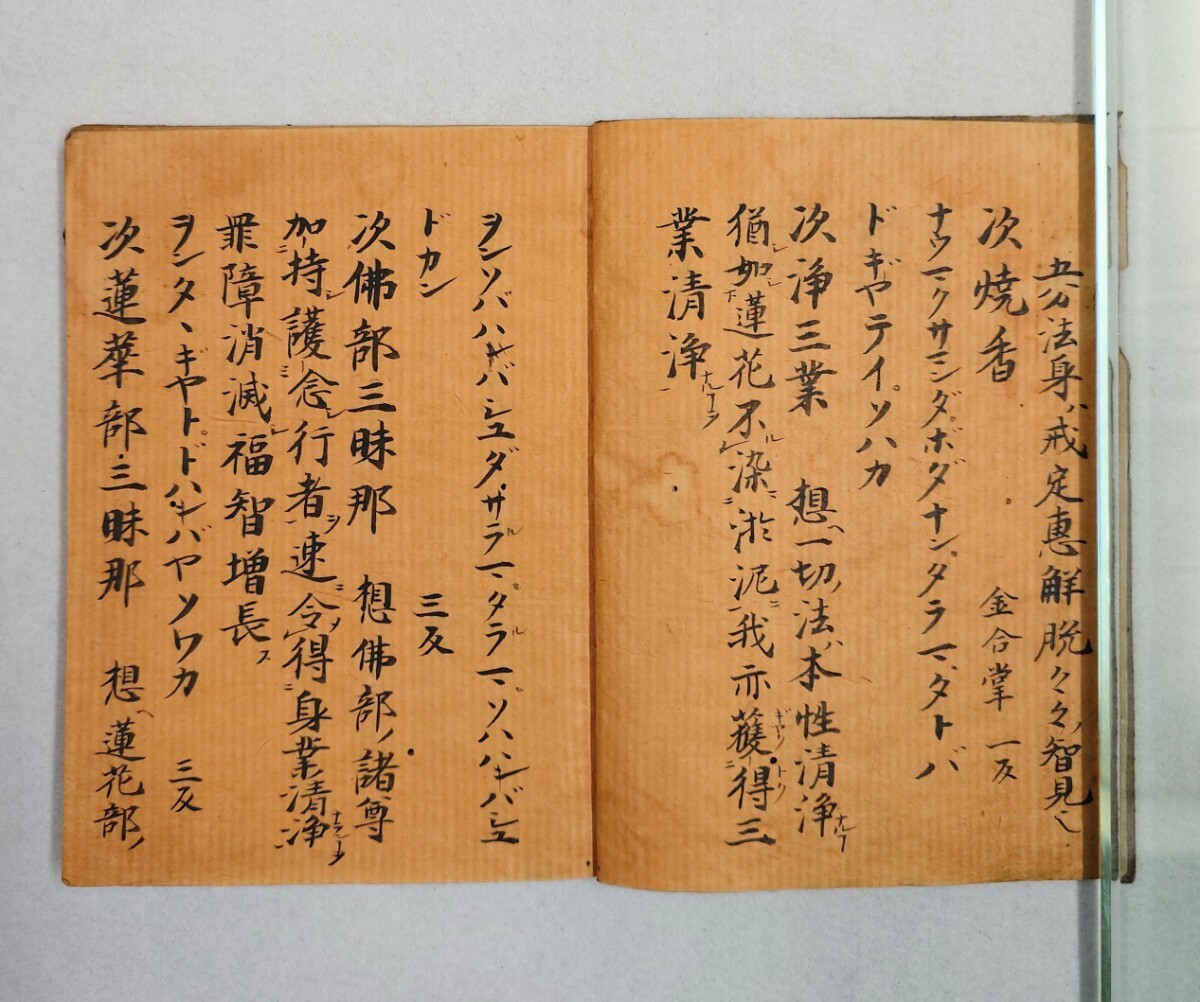 五分法身ハ戒定恵解脱々々ノ智見也
次焼香　金合掌　一反
ナウマクサマンダ。ボダナン。タラマ、タトバ
ドギヤテイ。ソハカ
次浄三業　想ヘ一切ノ法ハ本性清浄ナルフ
猶如蓮花不染淤泥我亦獲得三
業清浄ナルーヲ
ヲンソバハンバシユダ。サラマ。タラマ。ソハハンバシユ
ドカン　三反
次佛部三昧那　想佛部ノ諸尊
加持護念行者速令得身業清浄
罪障消滅福智増長ス
ヲンタヽギヤト。ドハンバヤソワカ　三反
次蓮華部三昧那　想ヘ蓮花部ノ